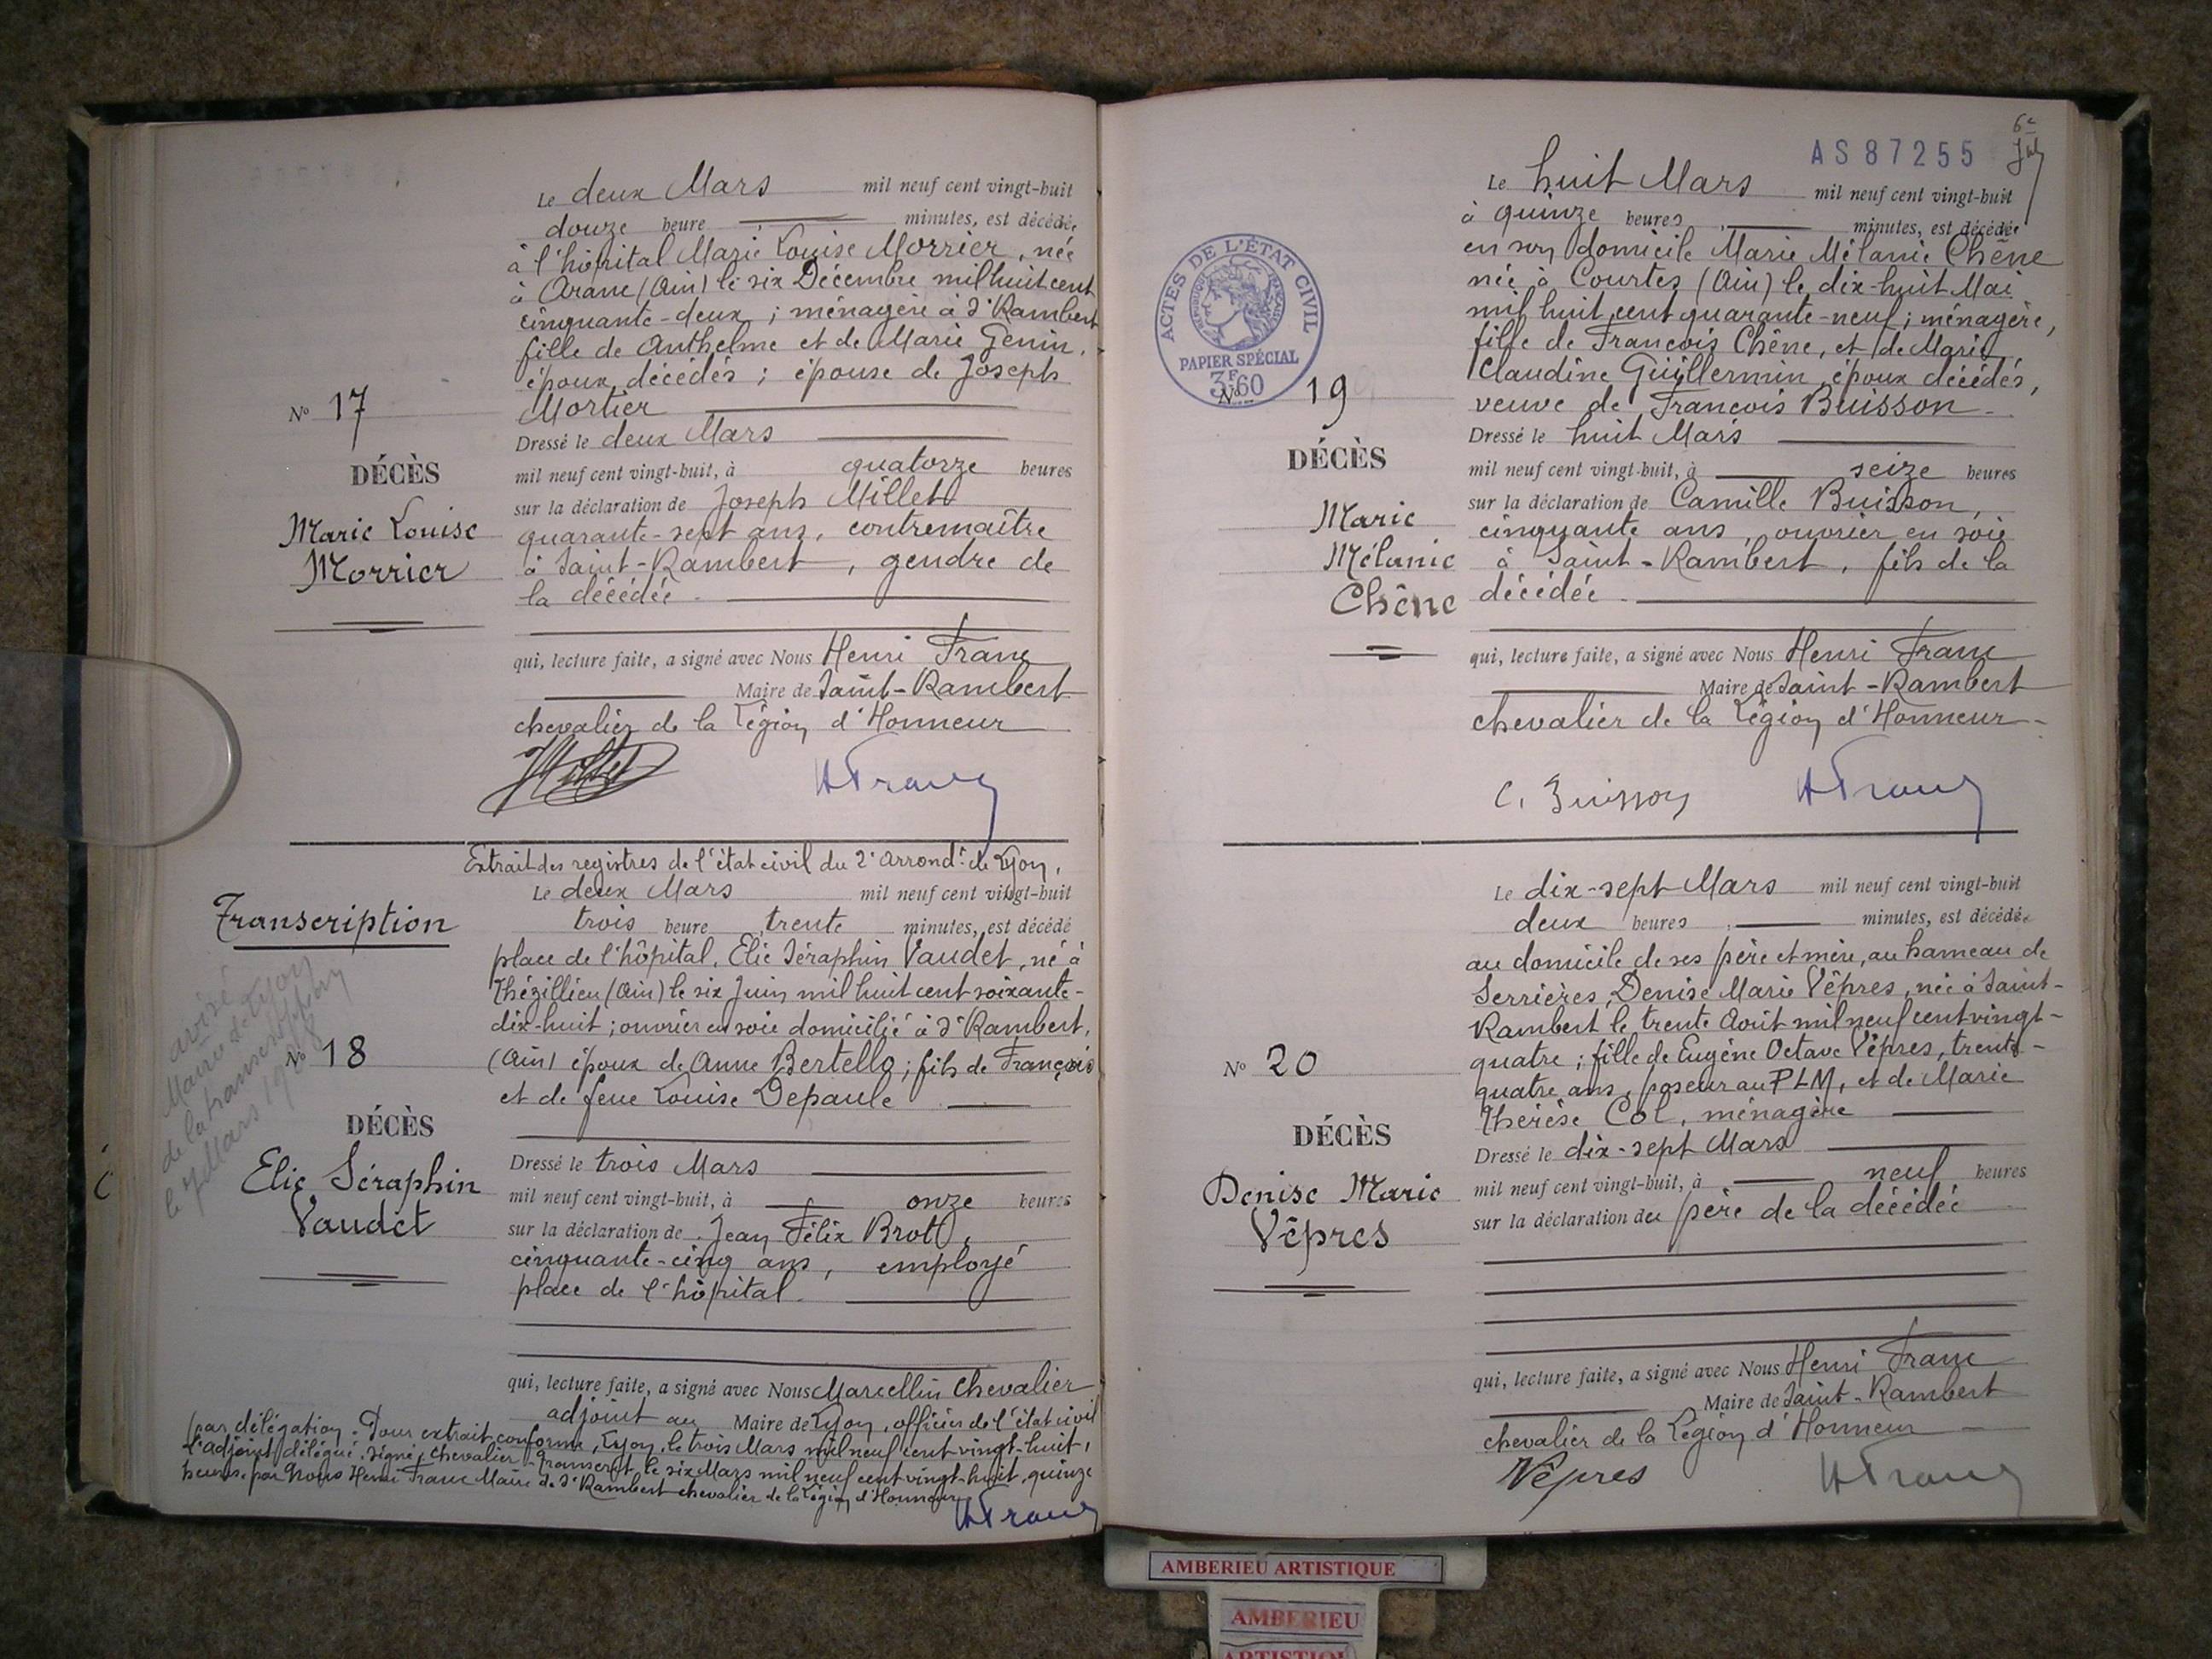 Le deux Mars mil neuf cent vingt-huit
douze heure minutes, est décédée,
à l'hôpital Marie Louise Morrier, née
à Aranc (Ain) le six Décembre mil huit cent
cinquante-deux ; ménagère à St Rambert
fille de Anthelme et de Marie Genin,
époux décédés ; épouse de Joseph
Mortier
Dressé le deux Mars
mil neuf cent vingt-huit, à quatorze heures
sur la déclaration de Joseph Millet
quarante-sept ans, contremaître
à Saint-Rambert, gendre de
la décédée.
qui, lecture faite, a signé avec Nous Henri Franc
Maire de Saint-Rambert
chevalier de la Légion d'Honneur
HFranc
No 17
DÉCÈS
Marie Louise
Morrier
Extrait des registres de l'état civil du 2e Arrondt de Lyon.
Le deux Mars mil neuf cent vingt-huit
trois heure trente minutes, est décédé
place de l'hôpital, Elie Séraphin Vaudet, né à
Thézillieu (Ain) le six Juin mil huit cent soixante-
dix-huit ; ouvrier en soie domicilié à St Rambert,
(Ain) époux de Anne Bertello ; fils de François
et de feue Louise Depaule
Dressé le trois Mars
mil neuf cent vingt-huit, à onze heures
sur la déclaration de Jean Félix Brott,
cinquante-cinq ans, employé
place de l'hôpital.
qui, lecture faite, a signé avec Nous Marcellin Chevalier
adjoint au Maire de Lyon, officier de l'état civil
(par délégation. Pour extrait conforme, Lyon, le trois Mars mil neuf cent vingt-huit,
l'adjoint délégué. Signé : Chevalier - Transcrit le six Mars mil neuf cent vingt-huit, quinze
heures par Nous Henri Franc Maire de St Rambert chevalier de la Légion d'Honneur
HFranc
Transcription
avisé
Mairie de Lyon
de la transcription
le 7 Mars 1928
No 18
DÉCÈS
Elie Séraphin
Vaudet
AS 87255
6e
Le huit Mars mil neuf cent vingt-huit
à quinze heures minutes, est décédée
en son domicile Marie Mélanie Chêne
née à Courtes (Ain) le dix-huit Mai
mil huit cent quarante-neuf ; ménagère,
fille de François Chêne, et de Marie
Claudine Guillermin, époux décédés,
veuve de François Buisson.
Dressé le huit Mars
mil neuf cent vingt-huit, à seize heures
sur la déclaration de Camille Buisson,
cinquante ans, ouvrier en soie
à Saint-Rambert, fils de la
décédée.
qui, lecture faite, a signé avec Nous Henri Franc
Maire de Saint-Rambert
chevalier de la Légion d'Honneur
C. Buisson HFranc
ACTES DE L'ÉTAT CIVIL
RÉPUBLIQUE FRANÇAISE
PAPIER SPÉCIAL
3F60
No 19
DÉCÈS
Marie
Mélanie
Chêne
Le dix-sept Mars mil neuf cent vingt-huit
deux heures minutes, est décédée
au domicile de ses père et mère, au hameau de
Serrières, Denise Marie Vêpres, née à Saint-
Rambert le trente Août mil neuf cent vingt-
quatre ; fille de Eugène Octave Vêpres, trente-
quatre ans, poseur au PLM, et de Marie
Thérèse Col, ménagère
Dressé le dix-sept Mars
mil neuf cent vingt-huit, à neuf heures
sur la déclaration du père de la décédée
qui, lecture faite, a signé avec Nous Henri Franc
Maire de Saint-Rambert
chevalier de la Légion d'Honneur
Vêpres HFranc
No 20
DÉCÈS
Denise Marie
Vêpres
AMBERIEU ARTISTIQUE
AMBERIEU
ARTISTIQUE